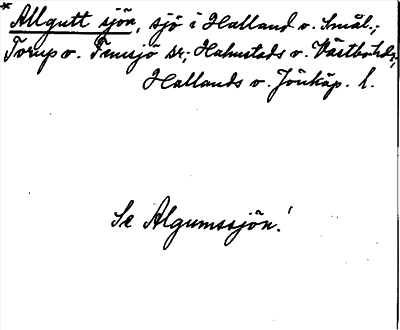 * Allgutt sjön, sjö i Halland o. Smål.;
Torup o. Femsjö sr; Halmstads o. Västbo hds;
Hallands o. Jönköp. l.
Se Algumssjön!